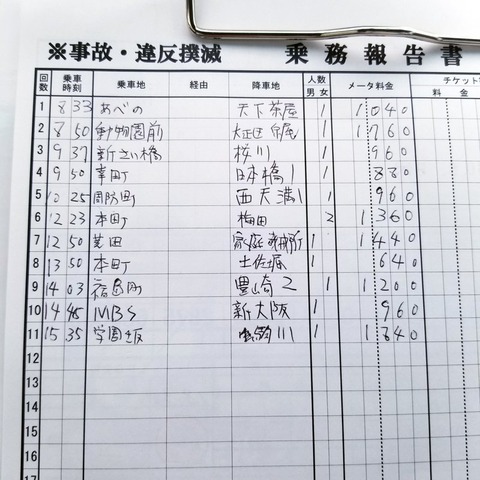 ※事故・違反撲滅 乗務報告書
回数 乗車時刻 乗車地 経由 降車地 人数 男 女 メータ料金 チケット 料 金
1 8 33 あべの 天下茶屋 1 1040
2 8 50 動物園前 大正区 1 1760
3 9 37 新なにわ橋 桜川 1 960
4 9 50 幸町 日本橋1 1 880
5 10 25 周防町 西天満 1 960
6 12 23 本町 梅田 2 1360
7 12 50 芝田 家庭裁判所 1 1440
8 13 50 本町 土佐堀 1 640
9 14 03 福島町 豊崎2 1 1200
10 14 45 MBS 新大阪 1 960
11 15 35 学園坂 川 1 1840
12
13
14
15
16
17